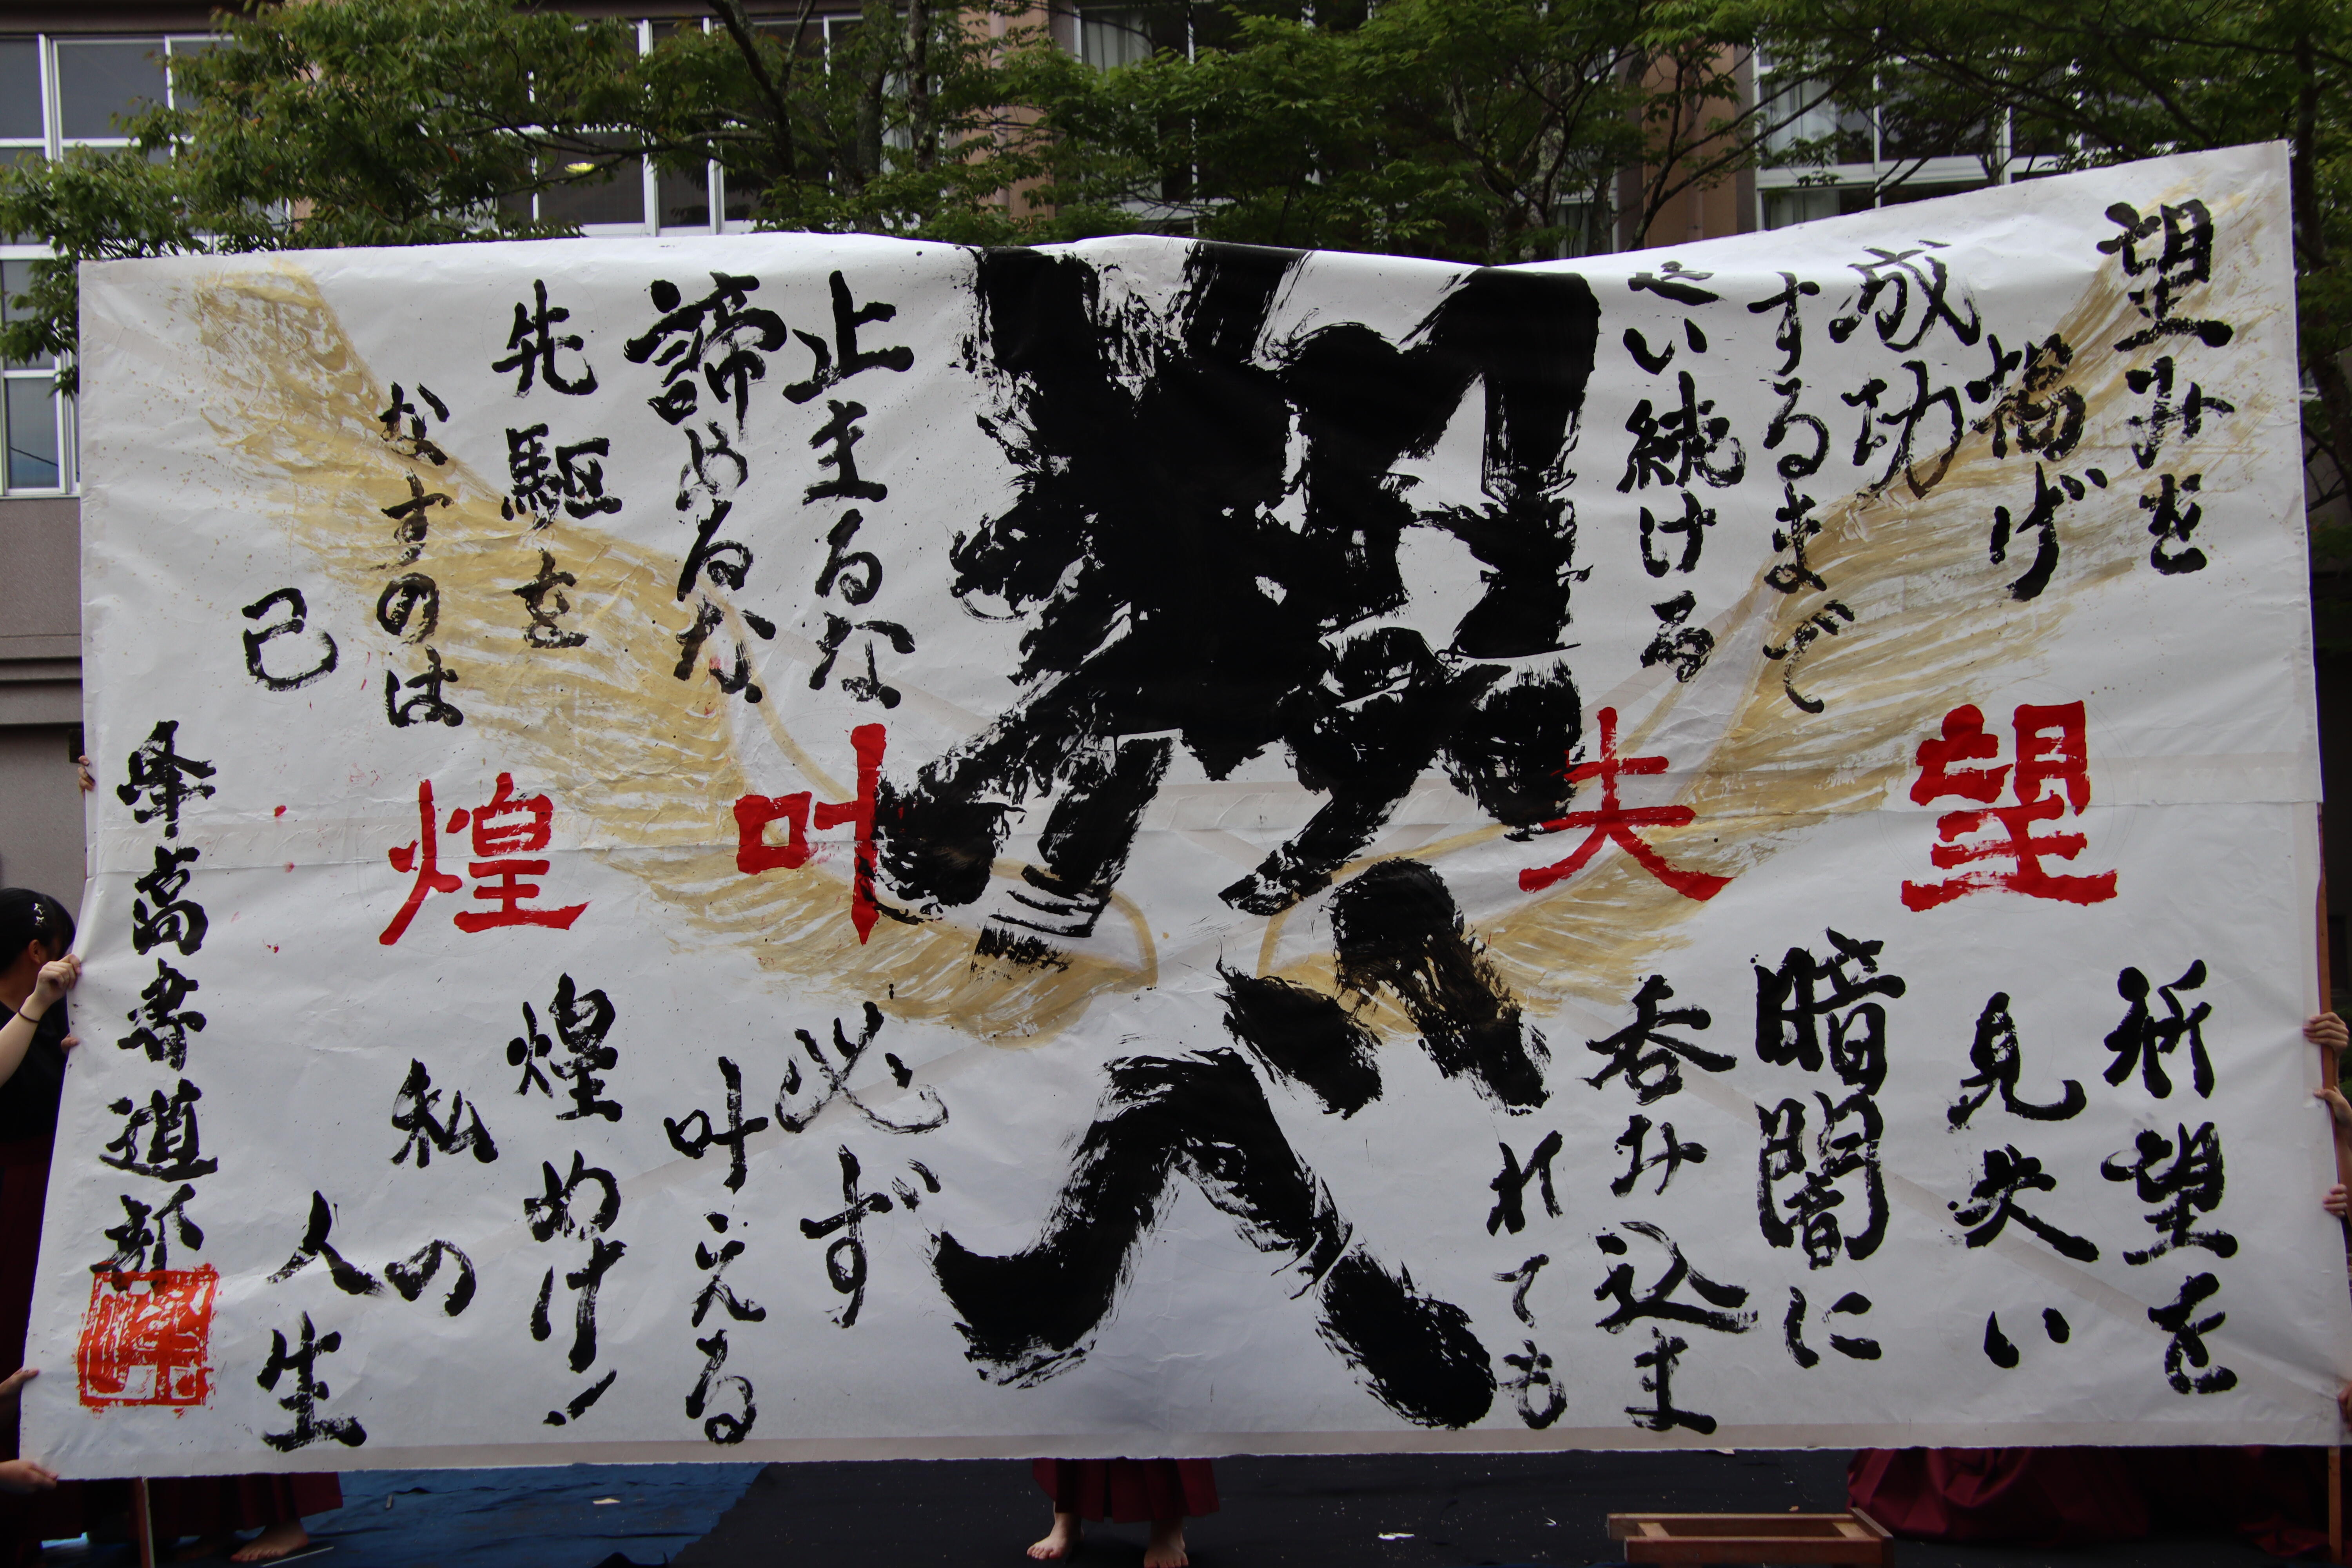 望みを
掲げ
成功
するまで
い続ける
望
失
叶
煌
祈望を
見失い
暗闇に
呑み込ま
れても
止まるな
諦めるな
先駆を
なすのは
己
必ず
叶える
煌めけ!
私の
人生
峰高書道部